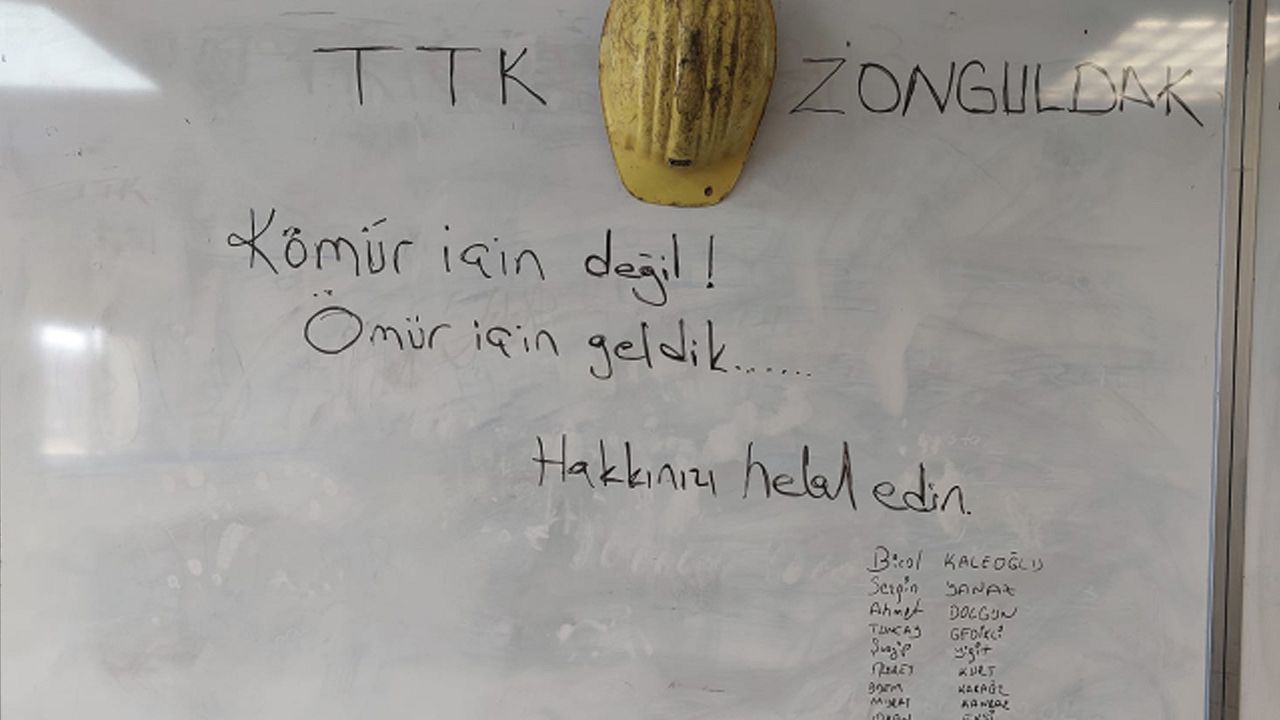 TTK ZONGULDAK
Kömür için değil!
Ömür için geldik......
Hakkınızı helal edin.
Birol KALEOĞLU
Sezgin YANAZ
Ahmet DOLGUN
TUNCAY GEDİKLİ
yiğit
KURT
MURAT